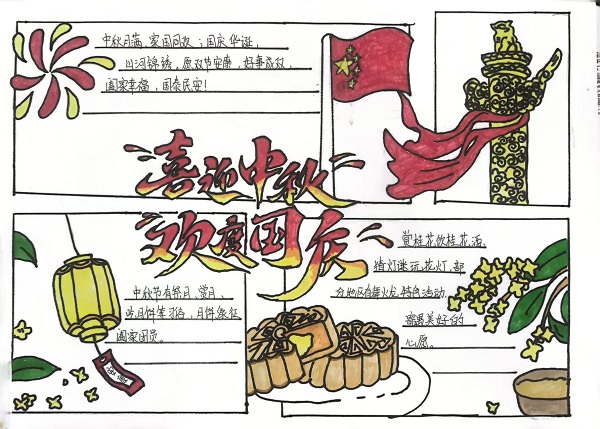 中秋月满,家国同欢;国庆华诞,
山河锦绣,愿双节安康,好事成双,
阖家幸福,国泰民安!
喜迎中秋
欢度国庆
中秋节有祭月、赏月、
吃月饼等习俗,月饼象征
阖家团员。
赏桂花饮桂花酒,
猜灯谜玩花灯,部
分地区有舞火龙特色活动,
寄寓美好的
心愿。